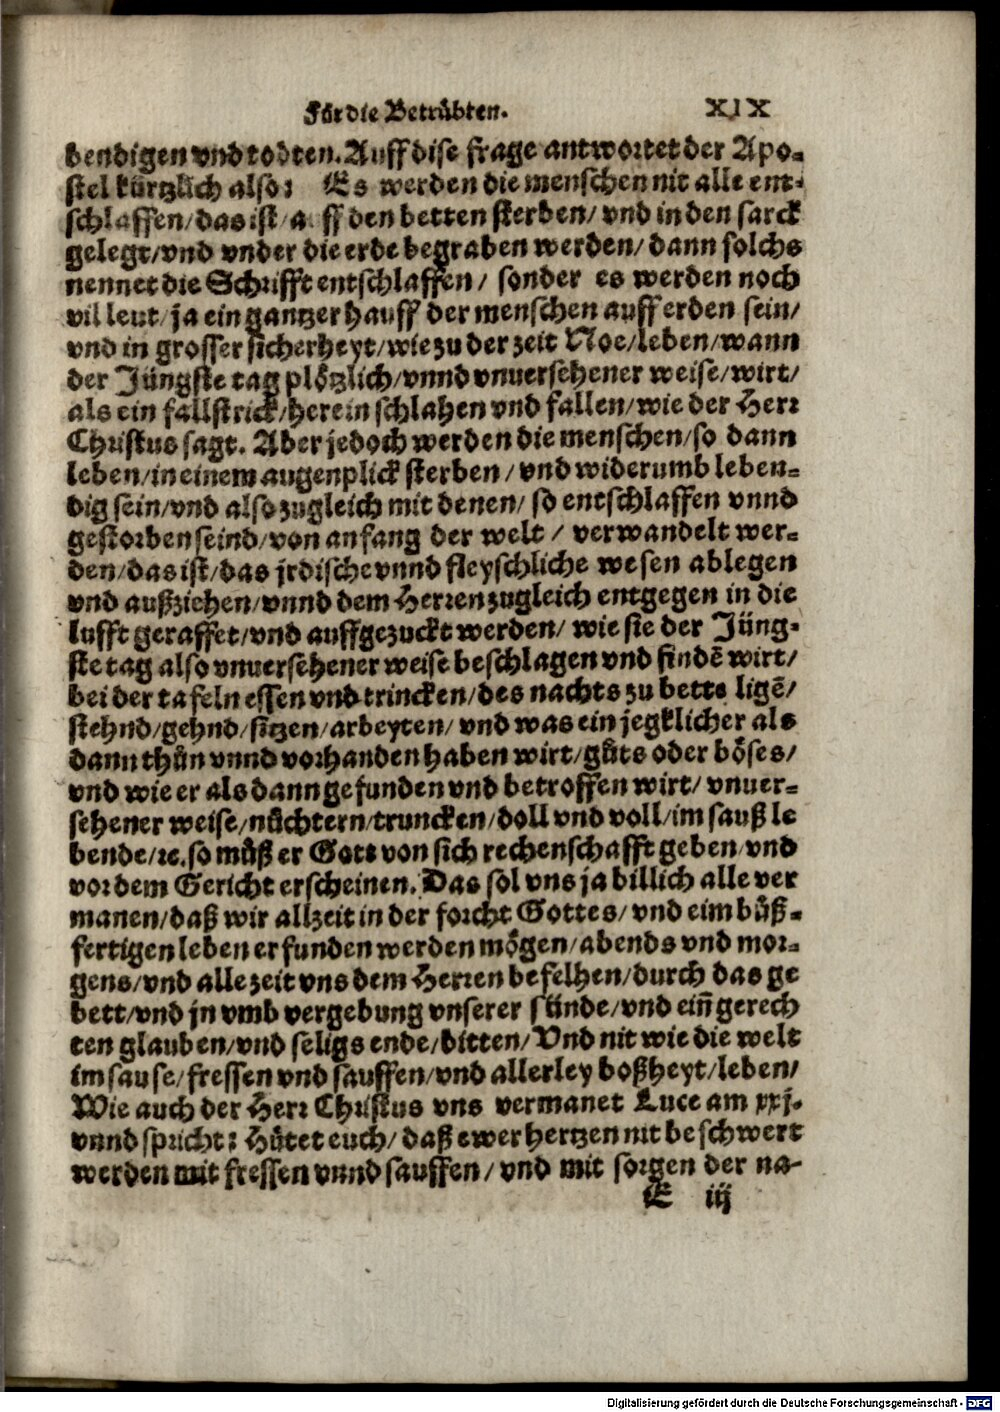 Für die Betrübten. XIX
bendigen vnd todten. Auff dise frage antwortet der Apo-
stel kürtzlich also: Es werden die menschen nit alle ent-
schlaffen/ das ist/ auff den betten sterben/ vnd in den sarck
gelegt/ vnd vnder die erde begraben werden/ dann solchs
nennet die Schrifft entschlaffen/ sonder es werden noch
vil leut/ ja ein gantzer hauff der menschen auff erden sein/
vnd in grosser sicherheyt/ wie zu der zeit Noe/ leben/ wann
der Jüngste tag plötzlich/ vnnd vnuersehener weise/ wirt/
als ein fallstrick/ herein schlahen vnd fallen/ wie der Herr
Christus sagt. Aber jedoch werden die menschen/ so dann
leben/ in einem augenplick sterben/ vnd widerumb leben-
dig sein/ vnd also zugleich mit denen/ so entschlaffen vnnd
gestorben seind/ von anfang der welt/ verwandelt wer-
den/ das ist/ das jrdische vnnd fleyschliche wesen ablegen
vnd außziehen/ vnnd dem Herren zugleich entgegen in die
lufft geraffet/ vnd auffgezuckt werden/ wie sie der Jüng-
ste tag also vnuersehener weise beschlagen vnd findē wirt/
bei der tafeln essen vnd trincken/ des nachts zu bette ligē/
stehnd/ gehnd/ sitzen/ arbeyten/ vnd was ein jegklicher als
dann thůn vnnd vorhanden haben wirt/ gůts oder böses/
vnd wie er als dann gefunden vnd betroffen wirt/ vnuer-
sehener weise/ nůchtern/ truncken/ doll vnd voll/ im sauß le
bende/ ꝛc. so můß er Gott von sich rechenschafft geben/ vnd
vor dem Gericht erscheinen. Das sol vns ja billich alle ver
manen/ daß wir allzeit in der forcht Gottes/ vnd eim bůß-
fertigen leben erfunden werden mögen/ abends vnd mor-
gens/ vnd alle zeit vns dem Herren befelhen/ durch das ge
bett/ vnd jn vmb vergebung vnserer sünde/ vnd ein̄ gerech
ten glauben/ vnd seligs ende/ bitten/ Vnd nit wie die welt
im sause/ fressen vnd sauffen/ vnd allerley boßheyt/ leben/
Wie auch der Herr Christus vns vermanet Luce am xxj.
vnnd spricht: Hütet euch/ daß ewer hertzen nit beschwert
werden mit fressen vnnd sauffen/ vnd mit sorgen der na-
E iij
Digitalisierung gefördert durch die Deutsche Forschungsgemeinschaft - DFG